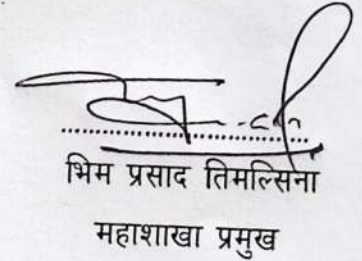 भिम प्रसाद तिमल्सिना
महाशाखा प्रमुख